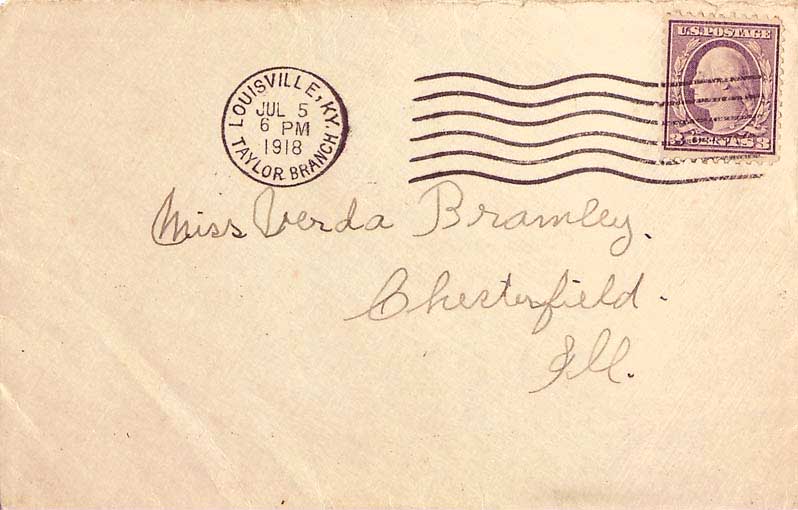 U.S. POSTAGE
3 CENTS 3
LOUISVILLE, KY.
JUL 5
6 PM
1918
TAYLOR BRANCH
Miss Verda Bramley.
Chesterfield.
Ill.